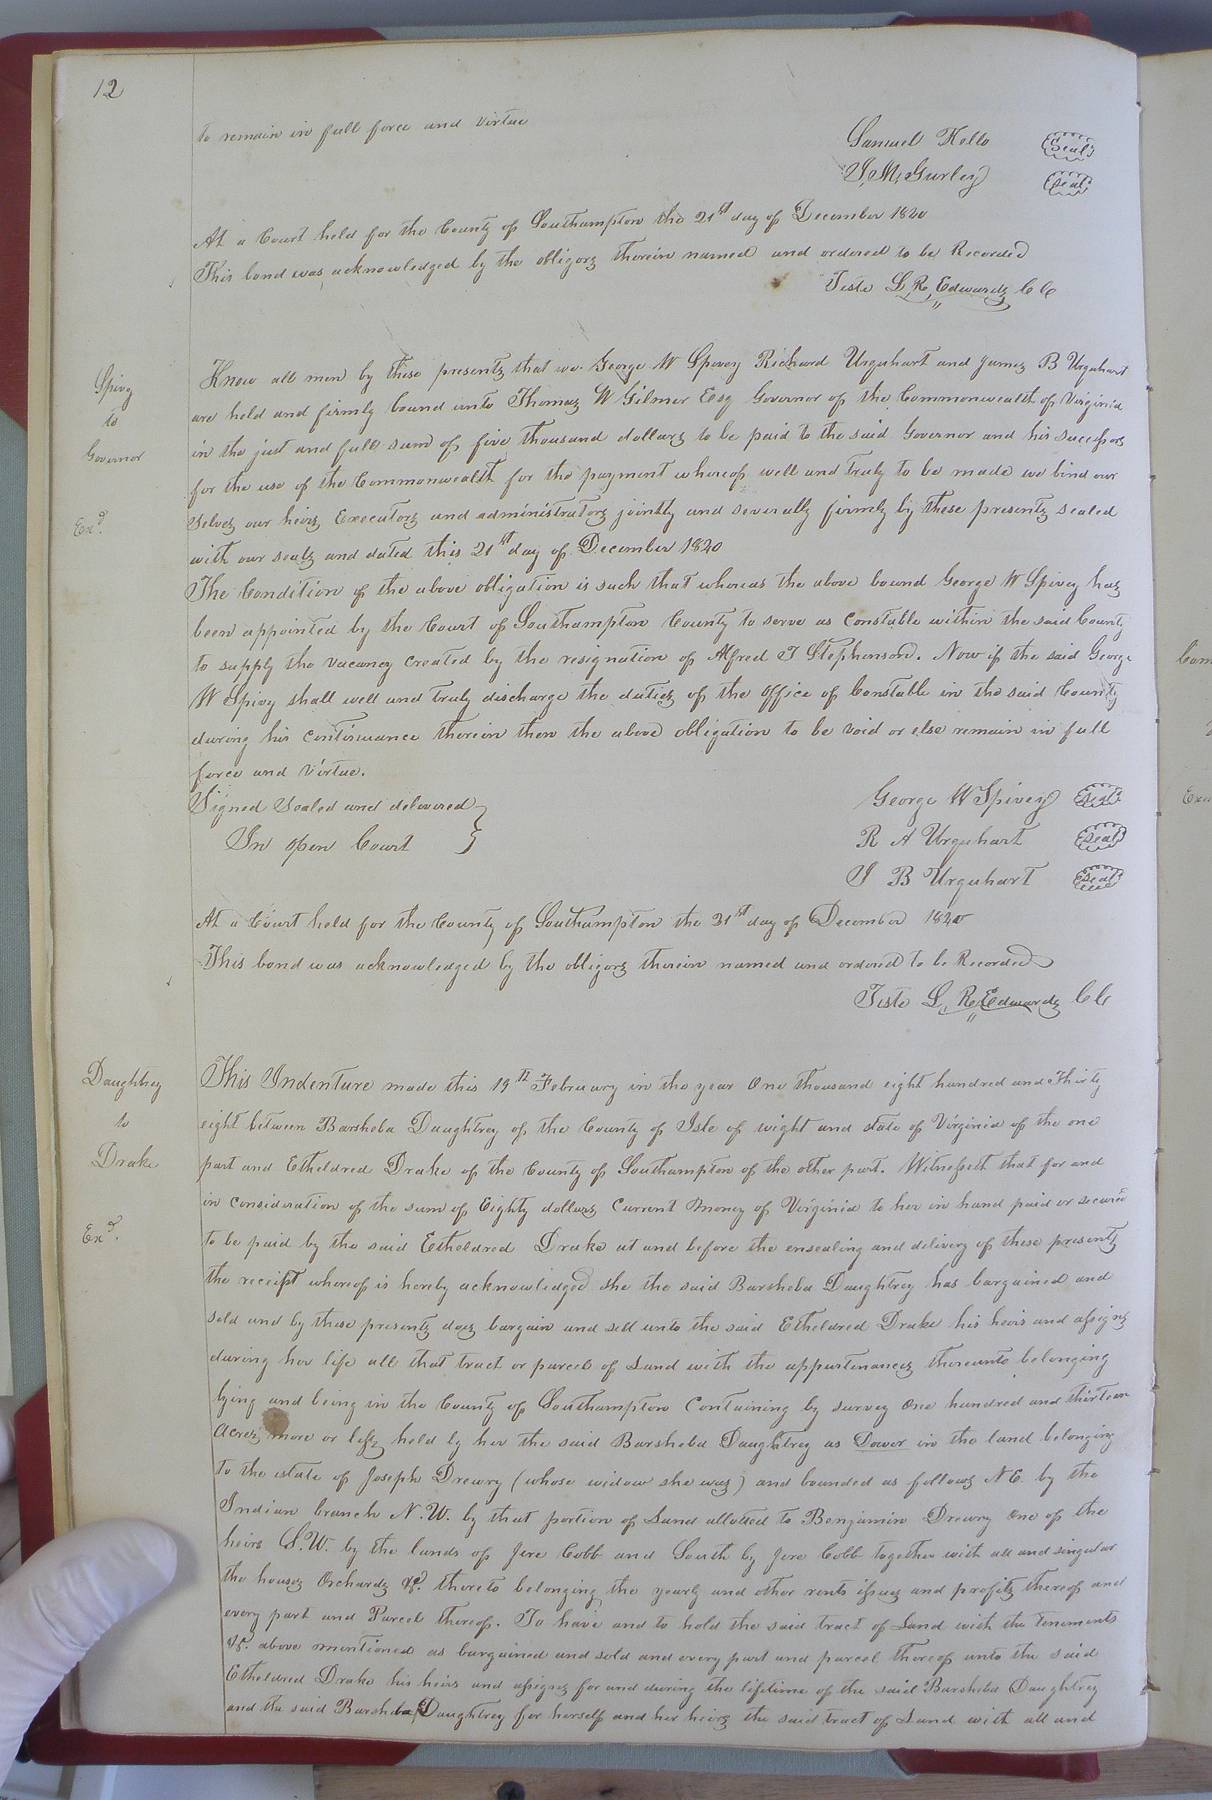 12
to remain in full force and virtue
Samuel Kello Seal
J. M. Gurley Seal
At a Court held for the County of Southampton the 21st day of December 1840
This bond was acknowledged by the obligors therein named and ordered to be Recorded
Teste L. R. Edwards CC
Spivy
to
Governor
Exd.
Know all men by these presents that we George W Spivey Richard Urquhart and James B Urquhart
are held and firmly bound unto Thomas W Gilmer Esq Governor of the Commonwealth of Virginia
in the just and full sum of five thousand dollars to be paid to the said Governor and his successors
for the use of the Commonwealth for the payment whereof well and truly to be made we bind our
selves our heirs Executors and administrators jointly and severally firmly by these presents sealed
with our seals and dated this 21st day of December 1840
The Condition of the above obligation is such that whereas the above bound George W Spivey has
been appointed by the Court of Southampton County to serve as Constable within the said County
to supply the vacancy created by the resignation of Alfred J Stephenson. Now if the said George
W Spivy shall well and truly discharge the duties of the office of Constable in the said County
during his continuance therein then the above obligation to be void or else remain in full
force and virtue.
Signed Sealed and delivered
In open Court
George W Spivey Seal
R A Urquhart Seal
J B Urquhart Seal
At a Court held for the County of Southampton the 31st day of December 1840
This bond was acknowledged by the obligors therein named and ordered to be Recorded
Teste L. R. Edwards CC
Daughtrey
to
Drake
Exd.
This Indenture made this 19th February in the year One thousand eight hundred and Thirty
eight between Barsheba Daughtrey of the County of Isle of wight and state of Virginia of the one
part and Etheldred Drake of the County of Southampton of the other part. Witnesseth that for and
in consideration of the sum of Eighty dollars Current money of Virginia to her in hand paid or secured
to be paid by the said Etheldred Drake at and before the ensealing and delivery of these presents
the receipt whereof is hereby acknowledged she the said Barsheba Daughtrey has bargained and
sold and by these presents does bargain and sell unto the said Etheldred Drake his heirs and assigns
during her life all that tract or parcel of Land with the appurtenances thereunto belonging
lying and being in the County of Southampton Containing by survey One hundred and thirteen
Acres more or less held by her the said Barsheba Daughtrey as Dower in the land belonging
to the estate of Joseph Drewry (whose widow she was) and bounded as follows N.E. by the
Indian branch N.W. by that portion of Land allotted to Benjamin Drewry one of the
heirs S.W. by the lands of Jere Cobb and South by Jere Cobb together with all and singular
the houses Orchards &c. thereto belonging the yearly and other rents issues and profits thereof and
every part and Parcel thereof. To have and to hold the said tract of Land with the tenements
&c. above mentioned as bargained and sold and every part and parcel thereof unto the said
Etheldred Drake his heirs and assigns for and during the lifetime of the said Barsheba Daughtrey
and the said Barsheba Daughtrey for herself and her heirs the said tract of Land with all and